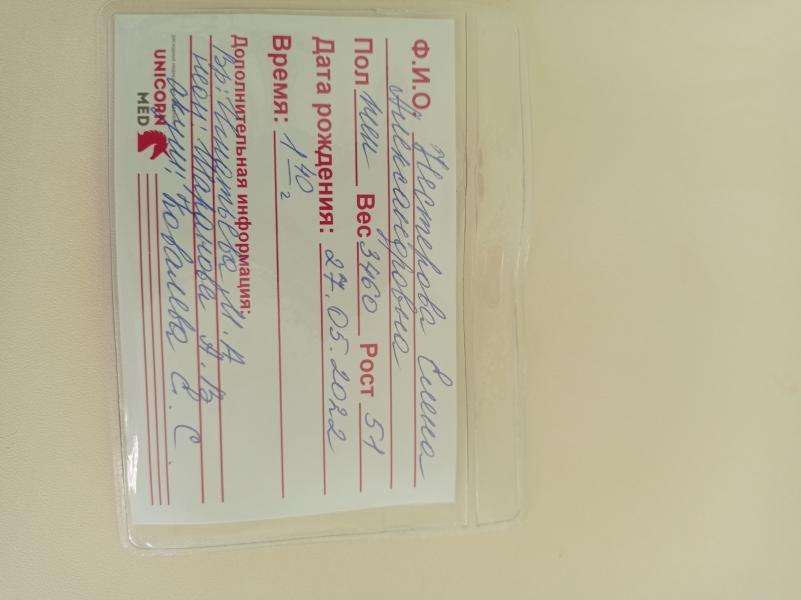 Ф.И.О. Нестерова Елена
Александровна
Пол жен Вес 3460 Рост 51
Дата рождения: 27.05.2022
Время: 1 40 г
Дополнительная информация:
Вр: Игнатьева М. А
неон: Шаранова А. В
акуш: Ковалева С. С.
UNICORN
MED